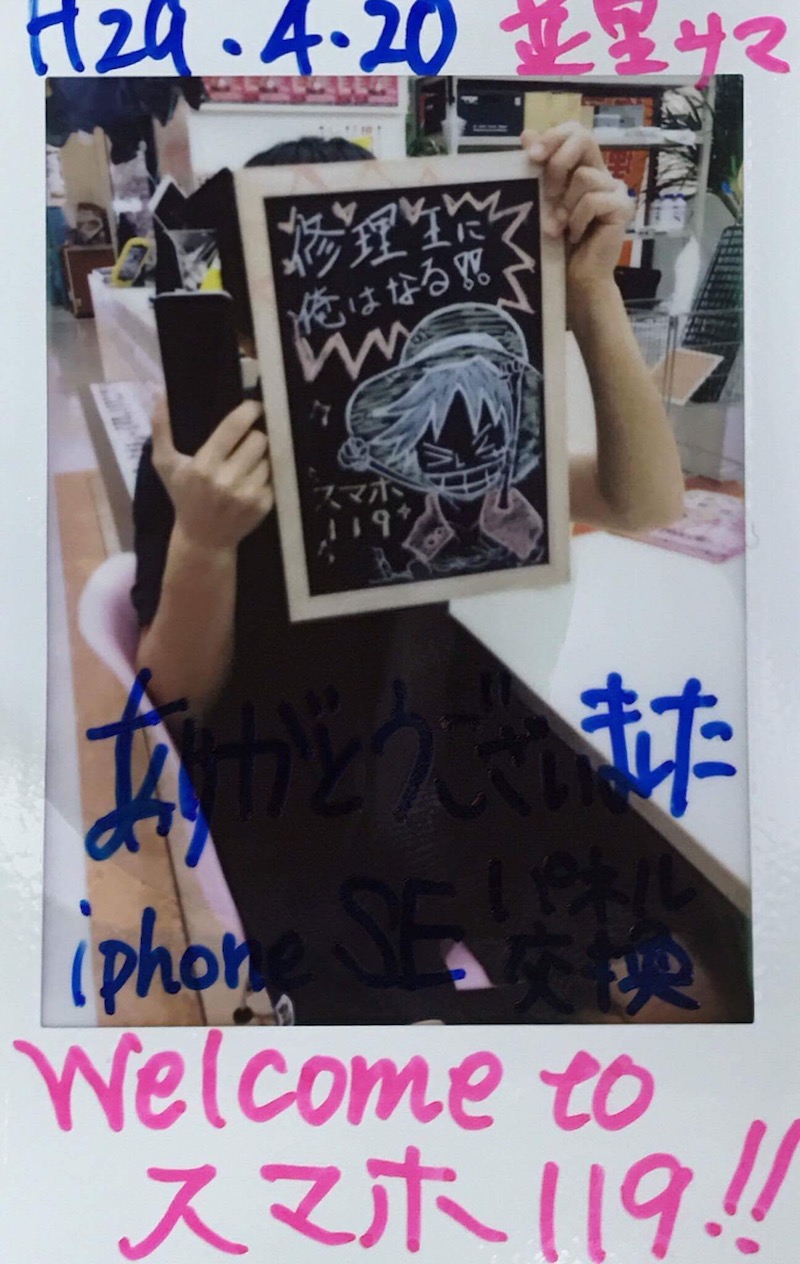 H29.4.20 並里サマ
修理王に
俺はなる!!
スマホ
119
ありがとうございました
iphone SE パネル
交換
Welcome to
スマホ 119!!